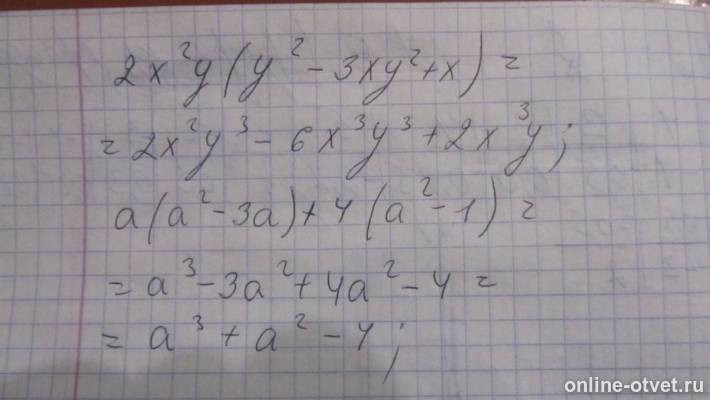 2x²y(y²-3xy²+x)=
=2x²y³-6x³y³+2x³y;
a(a²-3a)+4(a²-1)=
=a³-3a²+4a²-4=
=a³+a²-4;
online-otvet.ru